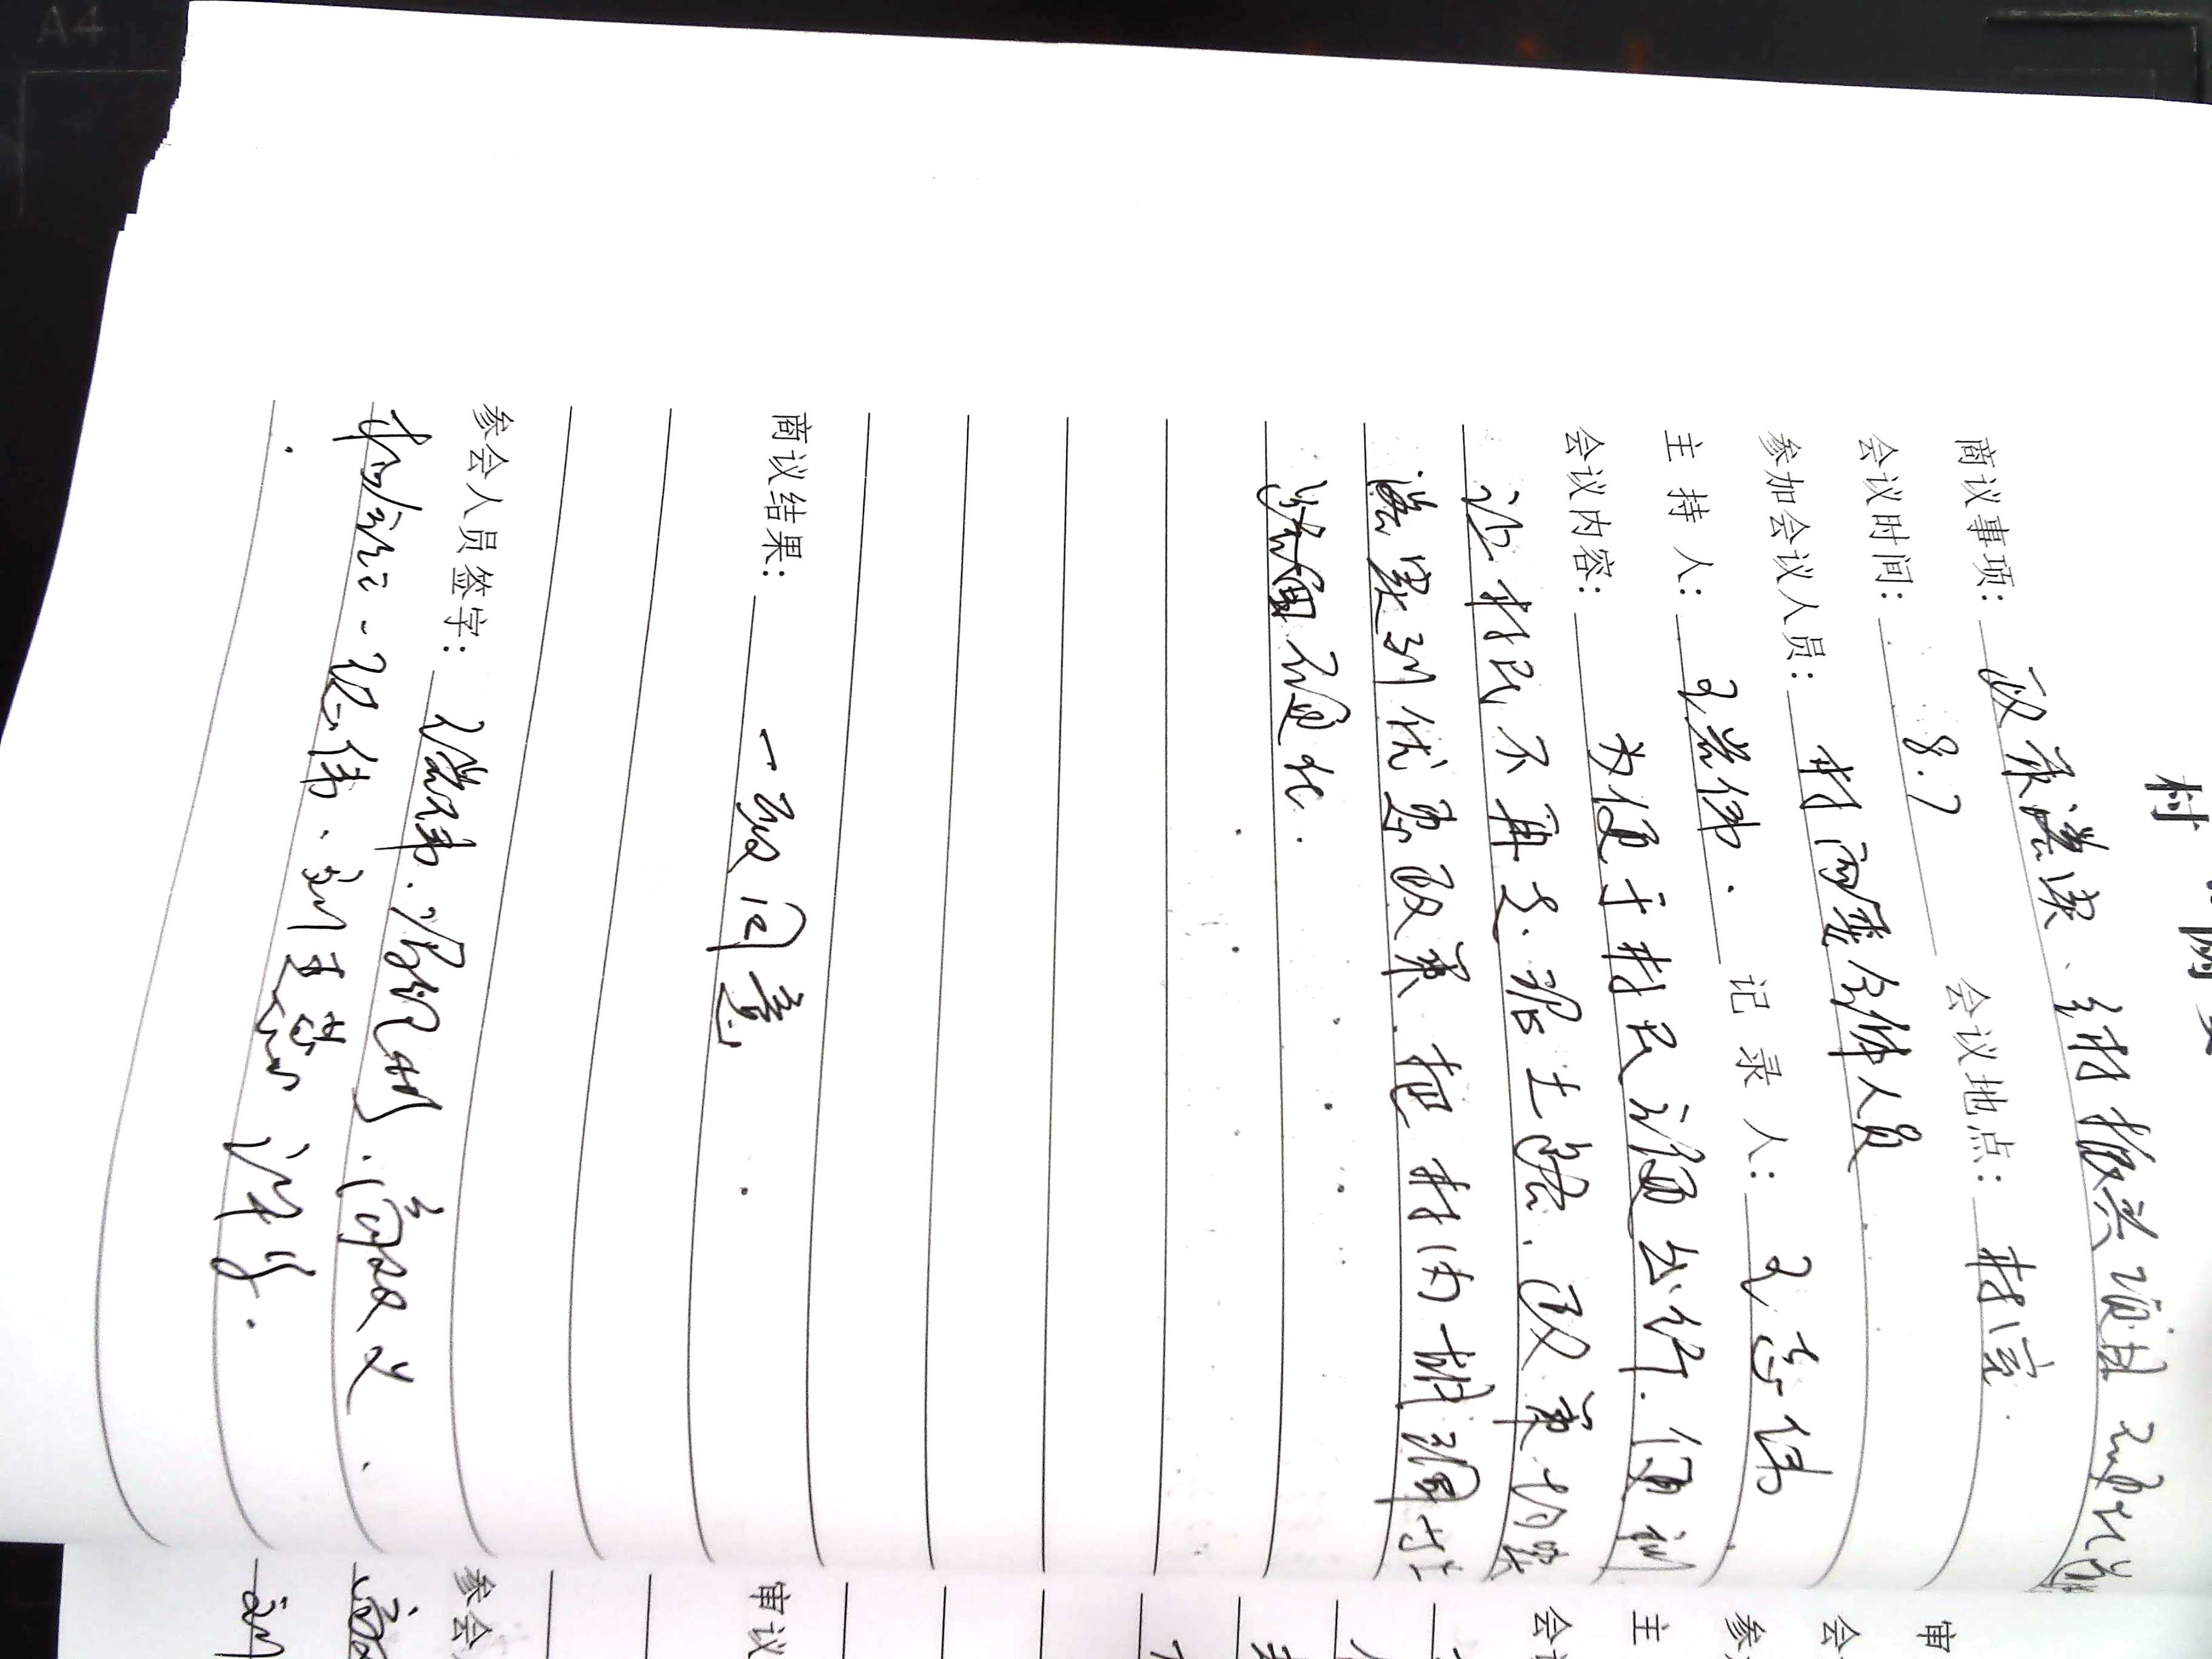 村 “两
商议事项: 政策落实、乡村振兴项目硬化道
会议时间: 8.7 会议地点: 村室
参加会议人员: 村两委全体人员
主持人: 王岩伟 记录人: 王志伟
会议内容: 为便于村民方便出行. 便利
让村民不再走泥土路. 政策切实
落实到优惠政策. 把村内胡同
路面硬化.
商议结果: 一致同意
参会人员签字: 王岩伟. 高双义
王志伟. 刘 慧 许
审
会
参
主
会
审议
参会
高双
刘
A4